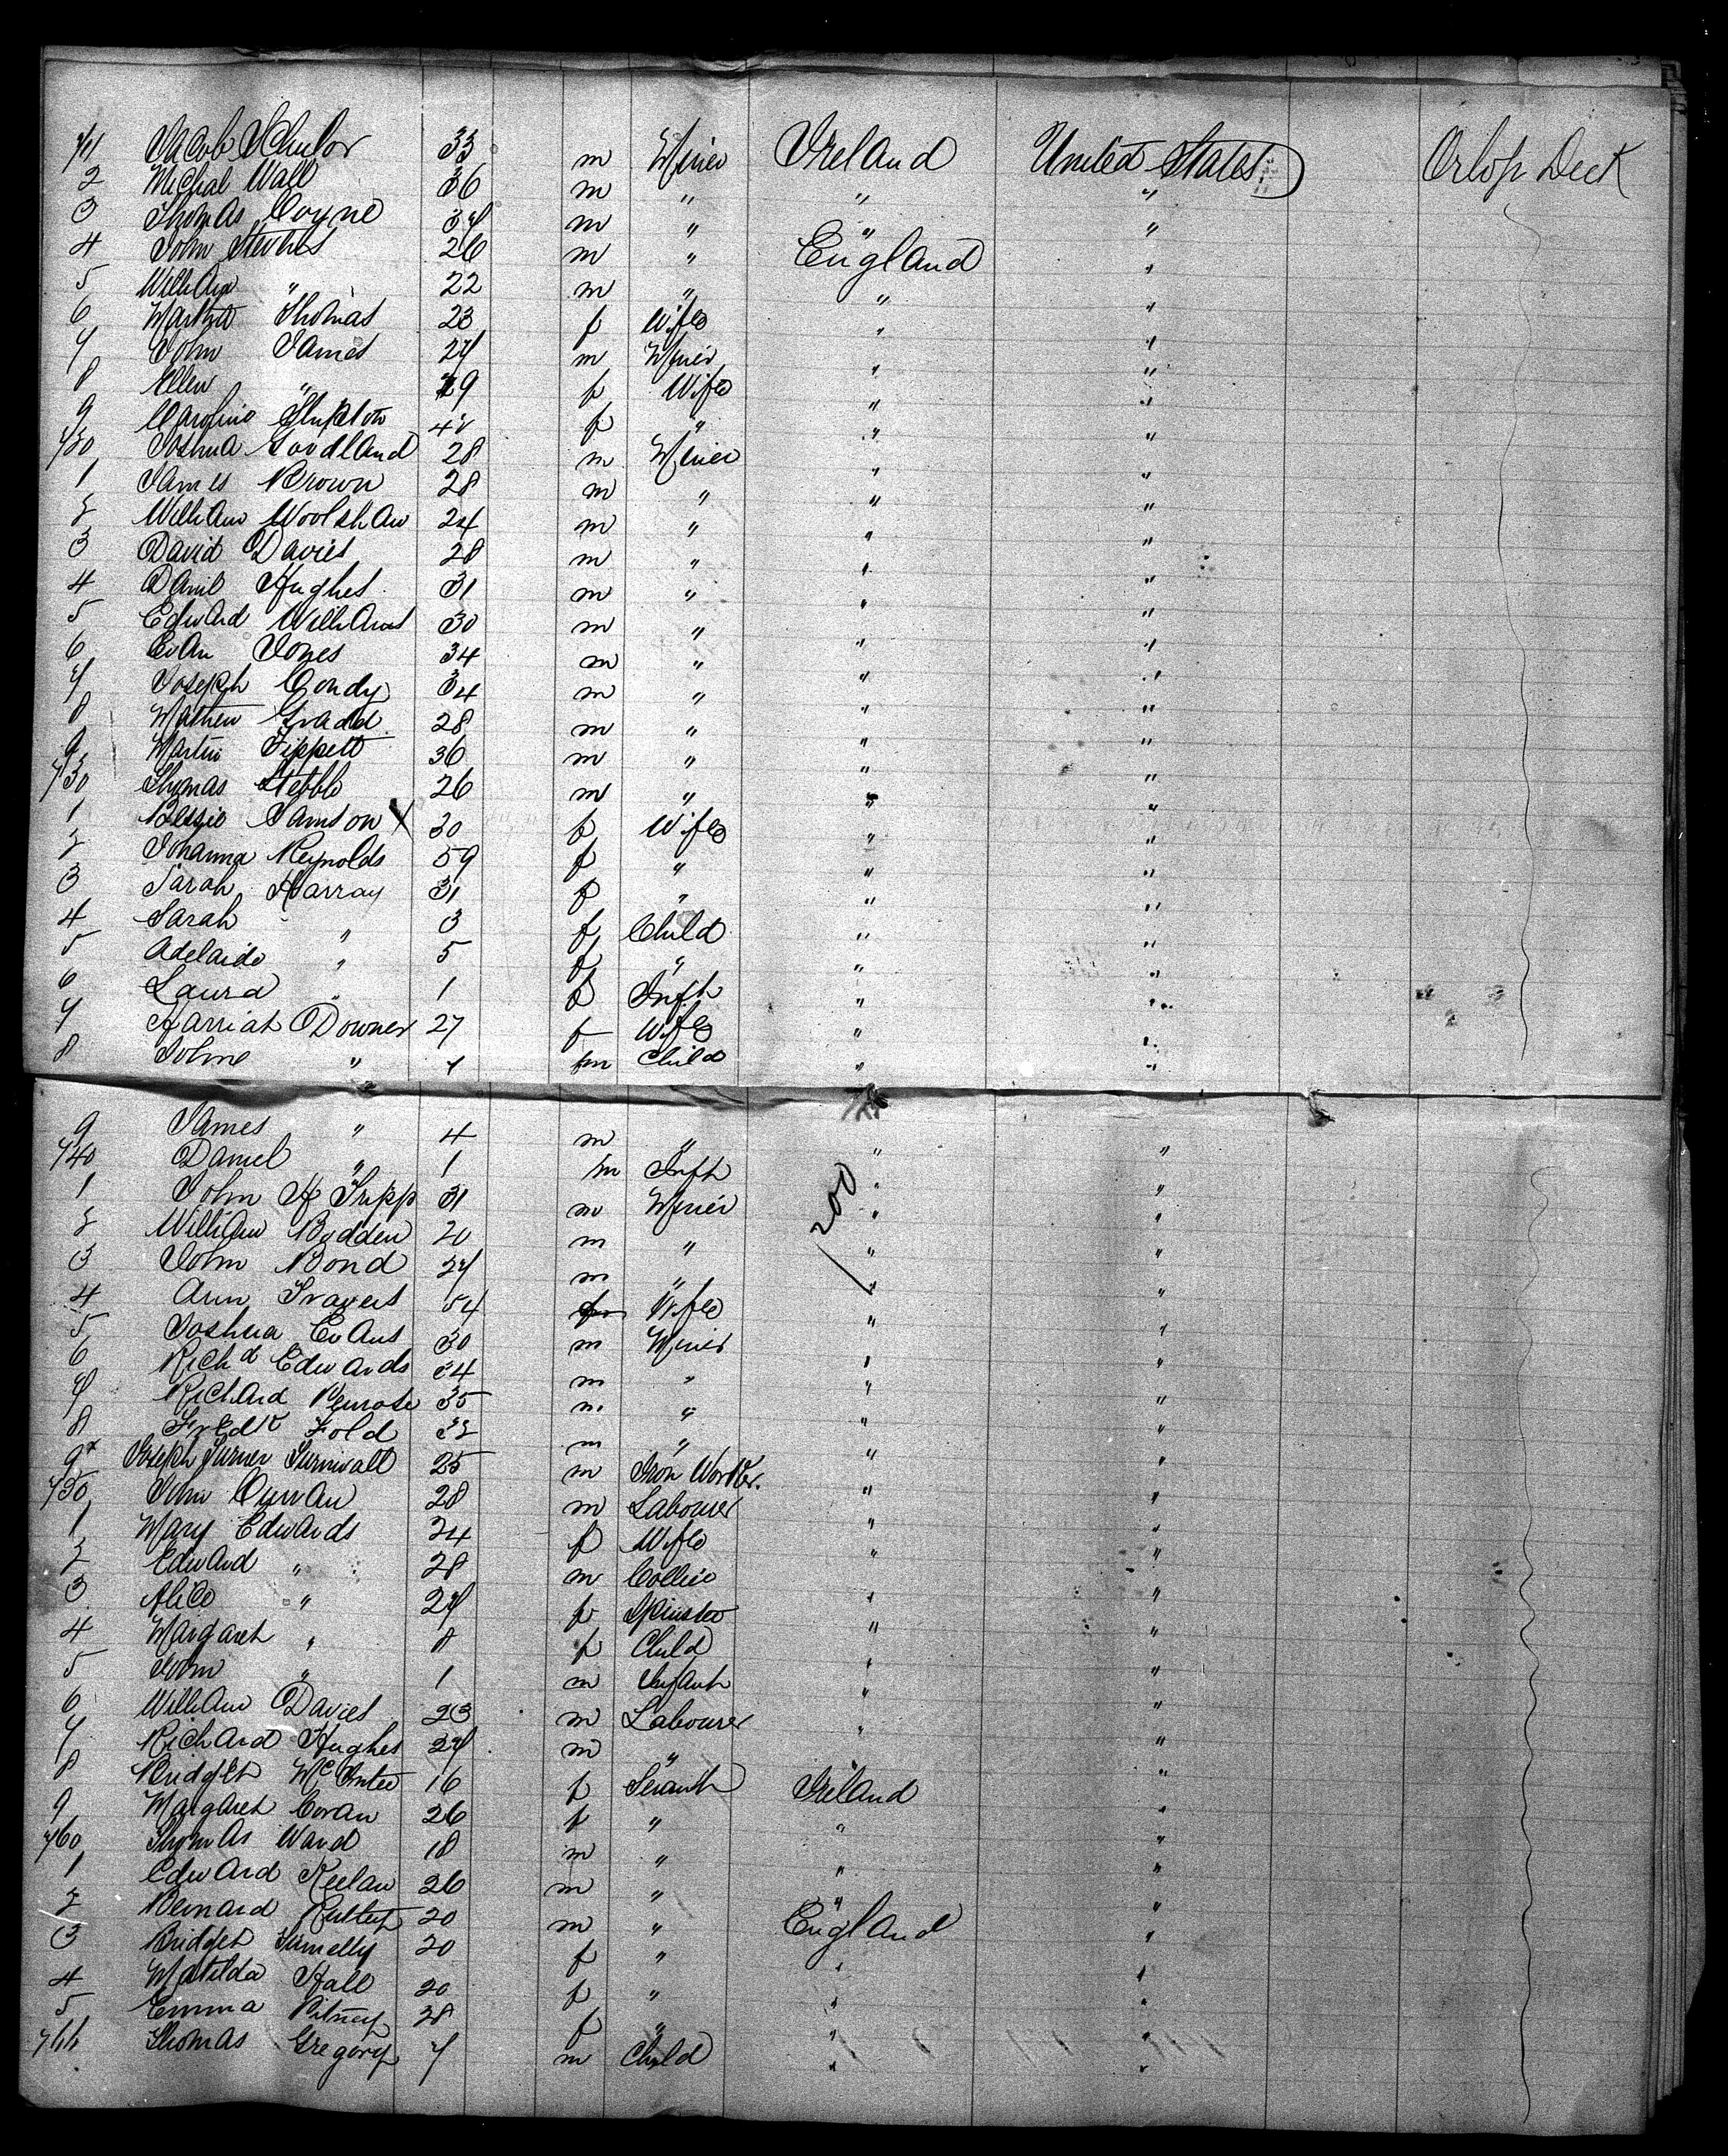 711 Jacob Schulor 33 m Miner Ireland United States Orlop Deck
2 Michal Wall 36 m " " "
3 Thomas Coyne 37 m " " "
4 John Stevens 26 m " England "
5 William " 22 m " " "
6 Martha Thomas 23 f Wife " "
7 John James 27 m Miner " "
8 Ellen " 29 f Wife " "
9 Caroline 42 f " " "
720 Joshua Goodland 28 m Miner " "
1 James Brown 28 m " " "
2 William Woolshaw 24 m " " "
3 David Davies 28 m " " "
4 Danil Hughes 31 m " " "
5 Edward Williams 30 m " " "
6 Evan Jones 34 m " " "
7 Joseph Condy 34 m " " "
8 Mathew 28 m " " "
9 Martin Tippett 36 m " " "
730 Thomas Stebbb 26 m " " "
1 Bessie Samson X 30 f Wife " "
2 Johanna Reynolds 59 f " " "
3 Sarah Harray 31 f " " "
4 Sarah " 3 f Child " "
5 Adelaide " 5 f " " "
6 Laura " 1 f Inft " "
7 Harriat Downer 27 f Wife " "
8 John " 7 m Child " "
9 James " 4 m " " "
740 Daniel " 1 m Inft " "
1 John H Tripp 31 m Miner " "
2 William Bodden 20 m " " "
3 John Bond 27 m " " "
4 Ann Travers 54 f Wife " "
5 Joshua Evans 30 m Miner " "
6 Richd Edwards 24 m " " "
7 Richard Penrose 35 m " " "
8 Fredk Fold 32 m " " "
9 x Joseph Turner Turnivall 25 m Iron Worker " "
750 John Curran 28 m Labourer " "
1 Mary Edwards 24 f Wife " "
2 Edward " 28 m Collier " "
3 Alice " 27 f Spinster " "
4 Margaret " 8 f Child " "
5 John " 1 m Infant " "
6 William Davies 23 m Labourer " "
7 Richard Hughes 27 m " " "
8 Bridget McEntee 16 f Servant Ireland "
9 Margaret Coran 26 f " " "
760 Thomas Ward 18 m " " "
1 Edward Keelan 26 m " " "
2 Bernard 20 m " England "
3 Bridget 20 f " " "
4 Matilda Hall 20 f " " "
5 Emma Pitney 28 f " " "
766 Thomas Gregory 7 m Child " "
200